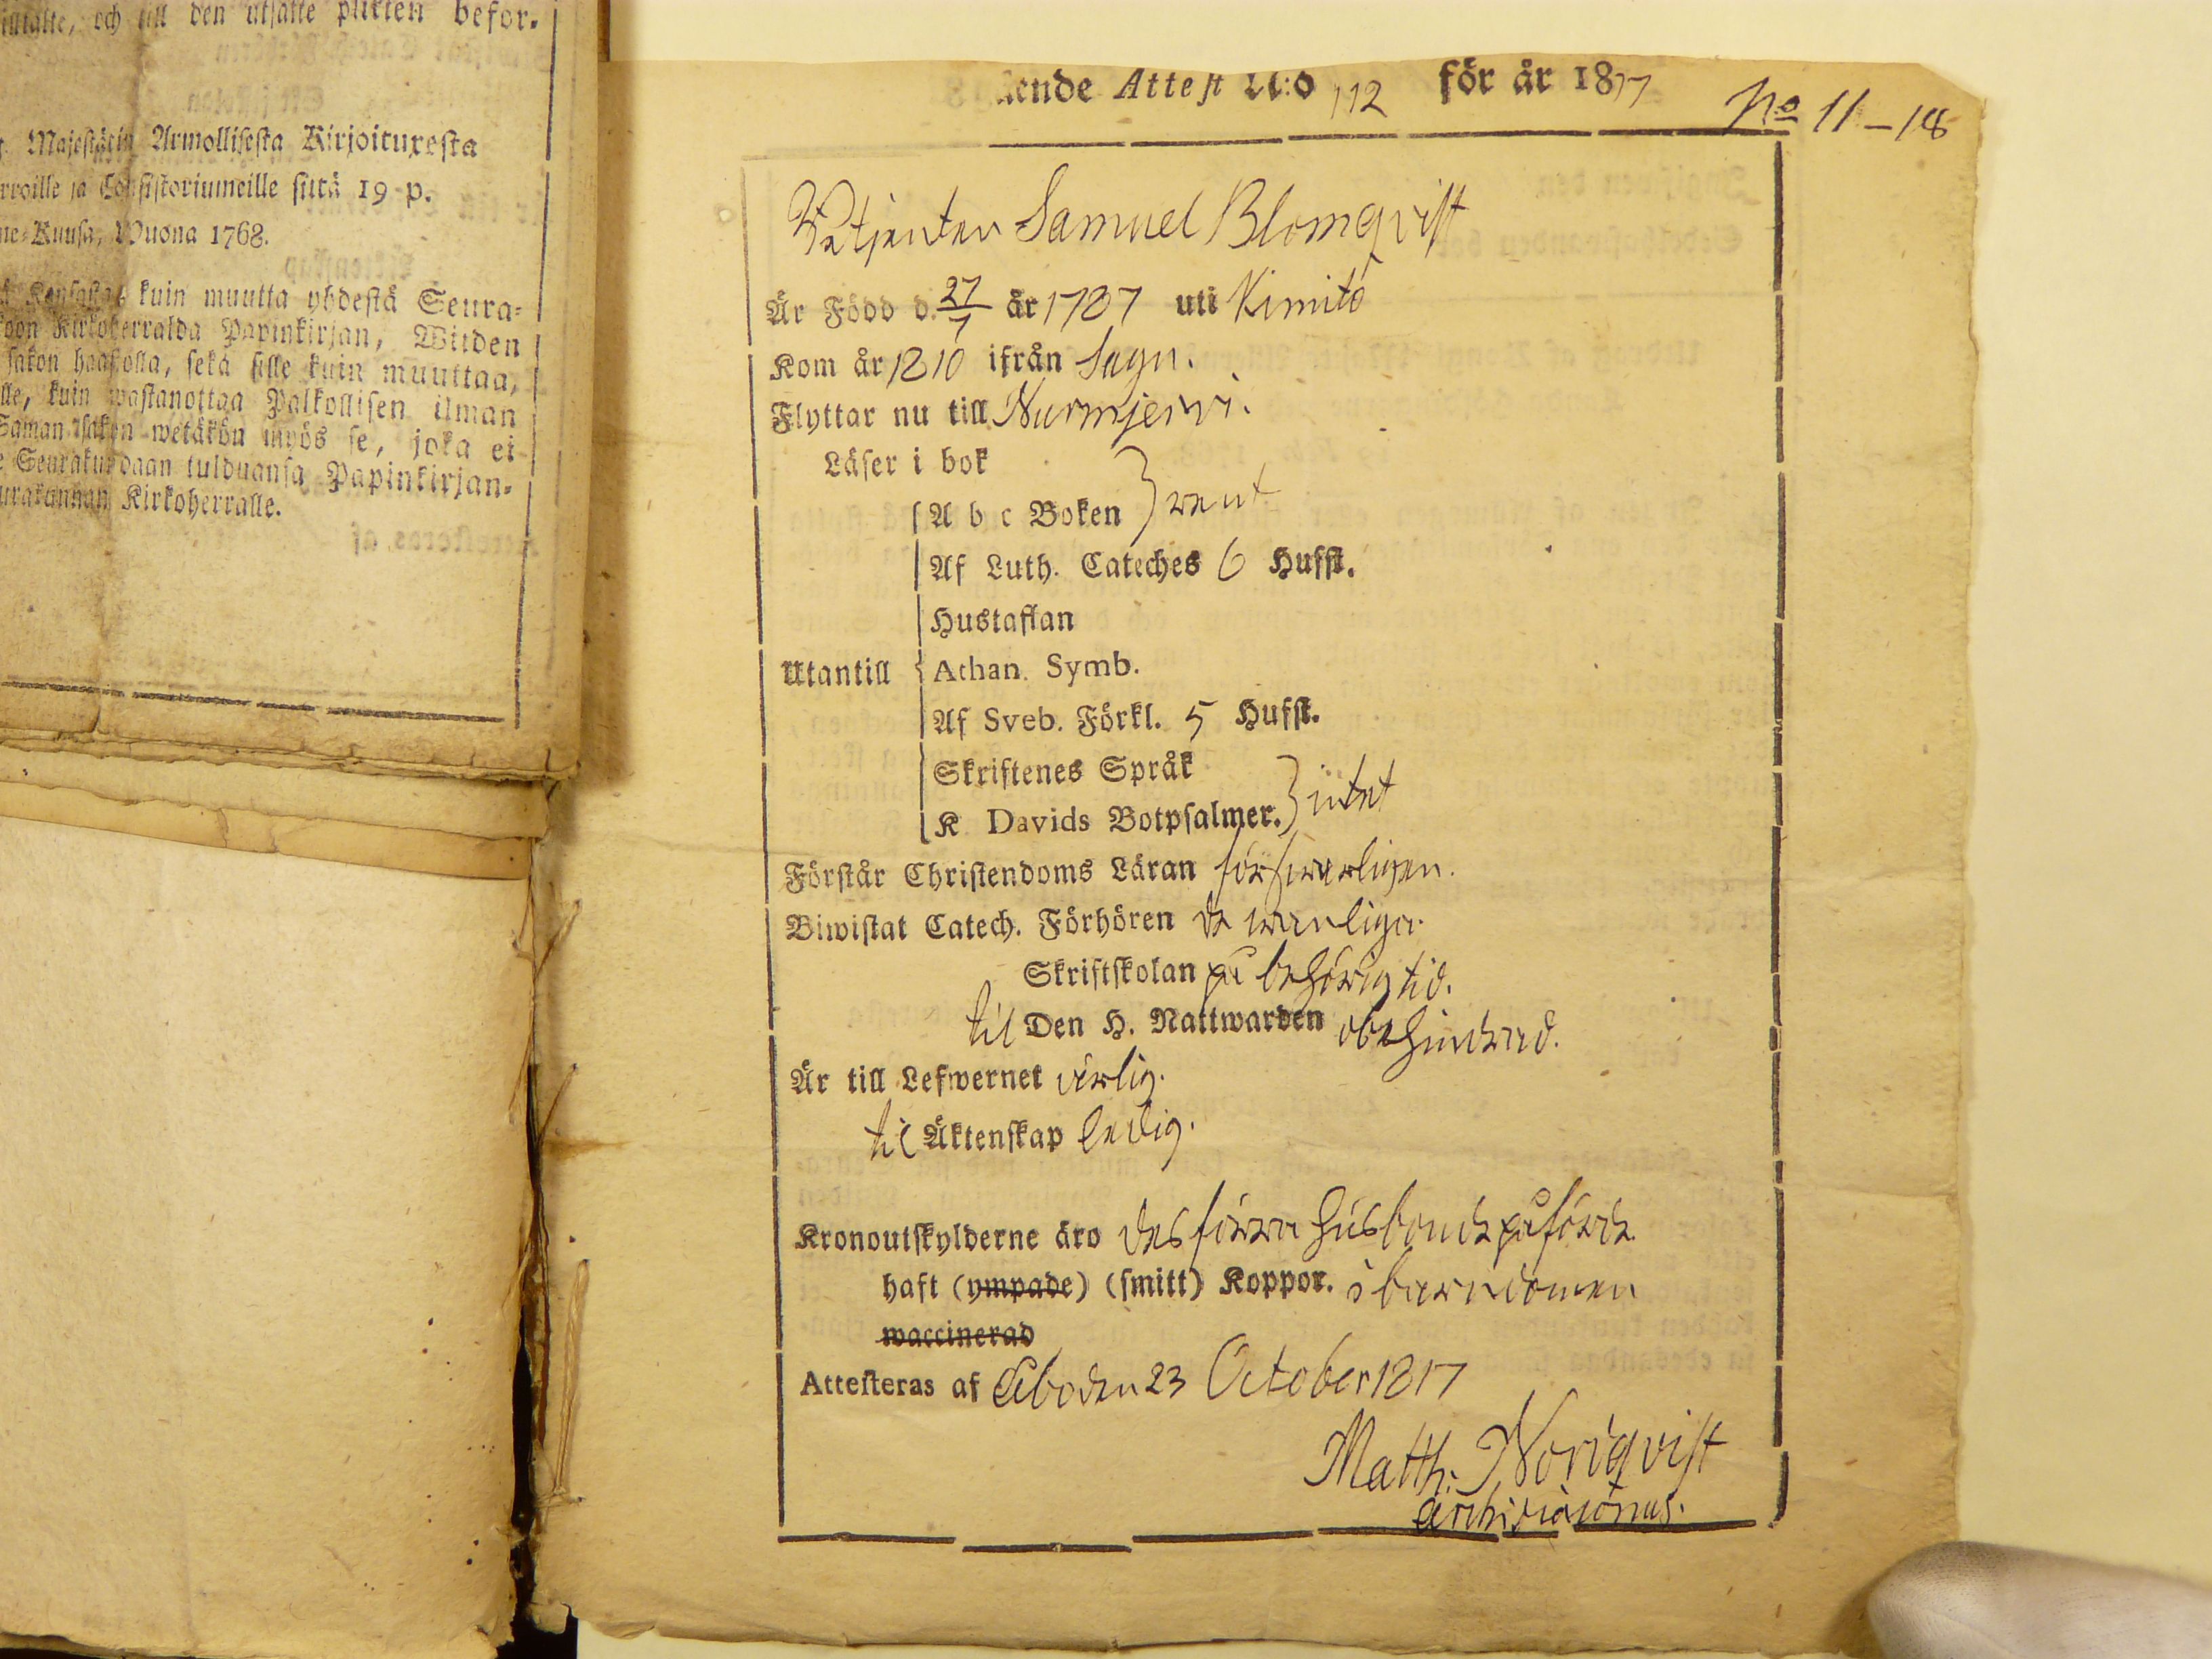 och till den utsatte punkten befor.
Majestätin Armollisesta Kirjoituxesta
ja Consistoriumeille siitä 19 p.
Kuusa, Wuona 1768.
kuin muutta yhdestä Seura-
Kirkoherralda Papinkirjan, Wiiden
sakon haastolla, sekä sille kuin muuttaa,
kuin wastanottaa Palkollisen ilman
Saman sakon wetäkön myös se, joka ei
Seurakundaan tulduansa Papinkirjan-
Kirkoherralle.
Attest N:o 112 för år 1817
No 11-18
Betjenten Samuel Blomqvist
Är Född d. 27/1 år 1787 uti Kimito
Kom år 1810 ifrån Sagu.
Flyttar nu till Nurmjervi.
Läser i bok
A b c Boken } rent
Af Luth. Cateches 6 Hufst.
Hustaflan
Utantill
Athan. Symb.
Af Sveb. Förkl. 5 Hufst.
Skriftenes Språk
K Davids Botpsalmer. } intet
Förstår Christendoms Läran försvarligen.
Biwistat Catech. Förhören de wanliga
Skriftskolan på behörig tid.
til Den H. Nattwarden obehindrad.
Är till Lefwernet ärlig.
til Äktenskap ledig.
Kronoutskylderne äro des förra husbonde påförde
haft (ympade) (smitt) Koppor. i barndomen
waccinerad
Attesteras af Åbo den 23 October 1817
Matth. Nordqvist
Archidiaconus.